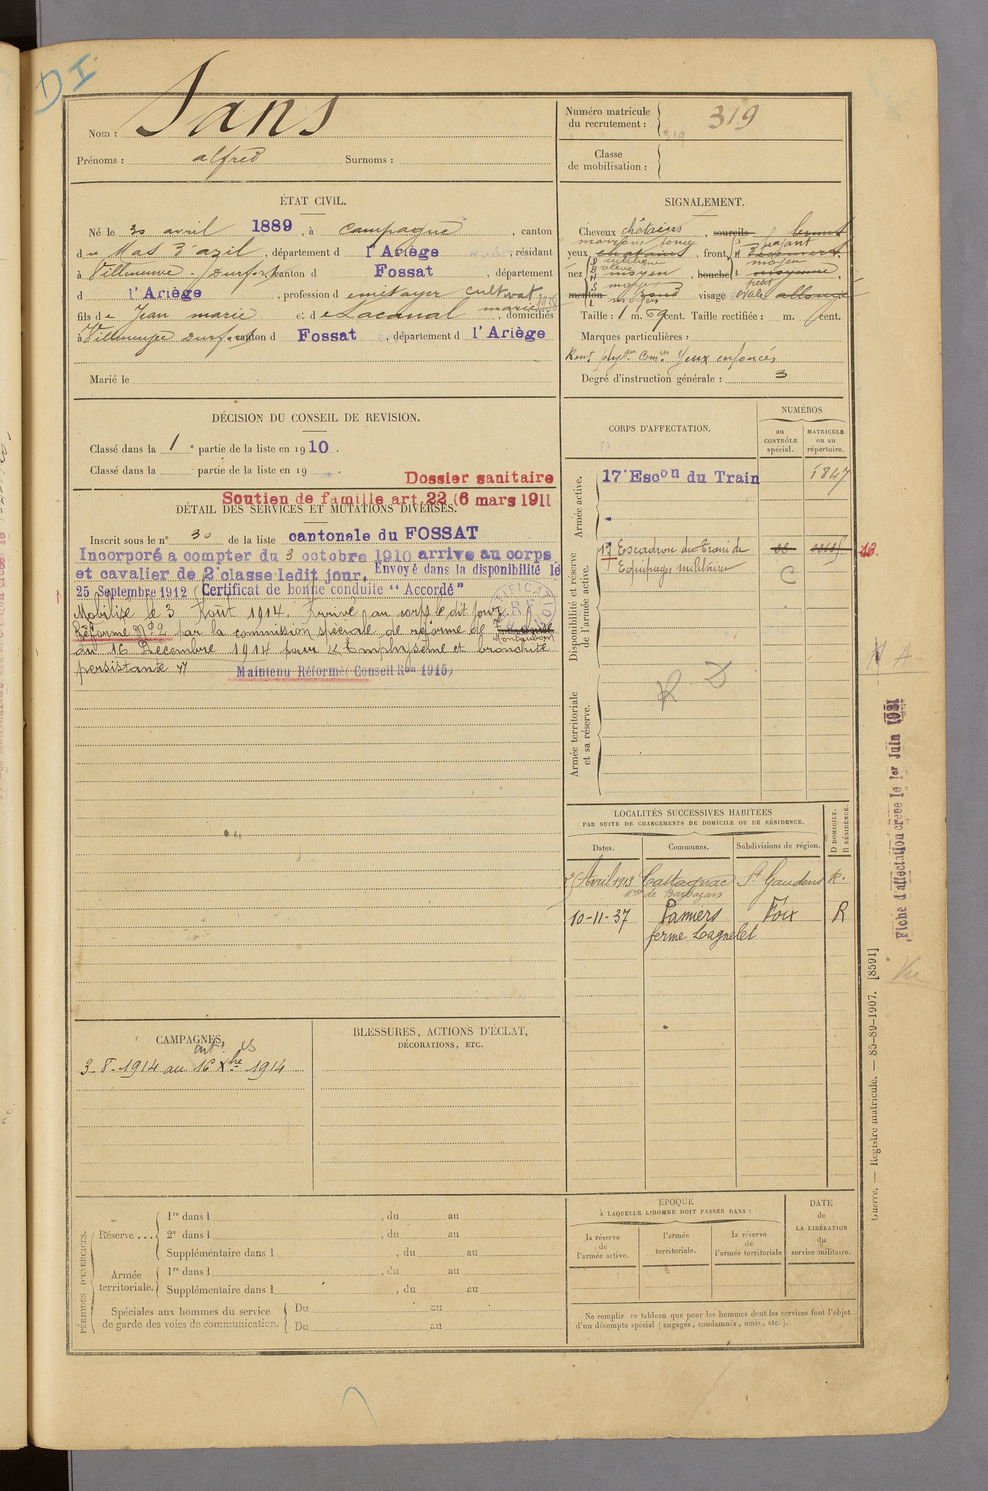 DI
Nom : Sans
Prénoms : alfred Surnoms :
Numéro matricule du recrutement : 319
319
Classe de mobilisation :
ÉTAT CIVIL.
Né le 30 avril 1889, à Campagne, canton
du Mas d'azil, département d l'Ariège, résidant
à Villeneuve-Durfort canton d Fossat, département
d l'Ariège, profession de cultivat
fils de Jean marie et de Lacanal, domiciliés
à Villeneuve Durfort canton d Fossat, département d l'Ariège
Marié le
SIGNALEMENT.
Cheveux châtains, sourcils bruns
marrons foncé fuyant
yeux chatains, front découvert
moyen
rectiligne
nez moyen, bouche moyenne,
petit
menton rond visage ovale allongé
Taille : 1 m. 69 cent. Taille rectifiée : m. cent.
Marques particulières :
Yeux enfoncés
Degré d'instruction générale : 3
DÉCISION DU CONSEIL DE REVISION.
Classé dans la 1e partie de la liste en 1910.
Classé dans la partie de la liste en 19 .
Dossier sanitaire
Soutien de famille art. 22 (6 mars 1911
DÉTAIL DES SERVICES ET MUTATIONS DIVERSES.
Inscrit sous le n° 30 de la liste cantonale du FOSSAT
Incorporé a compter du 3 octobre 1910 arrive au corps
et cavalier de 2e classe ledit jour. Envoyé dans la disponibilité le
25 Septembre 1912 (Certificat de bonne conduite "Accordé"
Mobilisé le 3 Août 1914. Arrivé au corps le dit jour
Réformé N°2 par la commission spéciale de réforme de
Montauban
du 16 Décembre 1914 pour "Emphysème et bronchite
persistante"
Maintenu Réformé (Conseil Ron 1915)
CORPS D'AFFECTATION.
NUMÉROS
au CONTRÔLE spécial.
MATRICULE ou au répertoire.
Armée active.
17e Escon du Train 5847
Disponibilité et réserve de l'armée active.
17 Escadron du Train des
Equipages militaires
C
Armée territoriale et sa réserve.
R D
LOCALITÉS SUCCESSIVES HABITÉES
PAR SUITE DE CHANGEMENTS DE DOMICILE OU DE RÉSIDENCE.
Dates. Communes. Subdivisions de région. D DOMICILE. R RÉSIDENCE.
25 Avril 1913 Castagnac St Gaudens R.
10-11-37 Pamiers Foix R
ferme Lagnelet
Fiche d'affectation créée le 1er Juin 1921
Vu
CAMPAGNES.
3-8-1914 au 16 Xbre 1914
BLESSURES, ACTIONS D'ÉCLAT,
DÉCORATIONS, ETC.
PÉRIODES D'EXERCICES.
Réserve ...
1re dans l , du au
2e dans l , du au
Supplémentaire dans l , du au
Armée territoriale.
1re dans l , du au
Supplémentaire dans l , du au
Spéciales aux hommes du service de garde des voies de communication.
Du au
Du au
ÉPOQUE
À LAQUELLE L'HOMME DOIT PASSER DANS :
la réserve de l'armée active.
l'armée territoriale.
la réserve de l'armée territoriale
DATE de LA LIBÉRATION du service militaire.
Ne remplir ce tableau que pour les hommes dont les services font l'objet
d'un décompte spécial (engagés, condamnés, omis, etc.).
Guerre. — Registre matricule. — 85-89-1907. [8591]